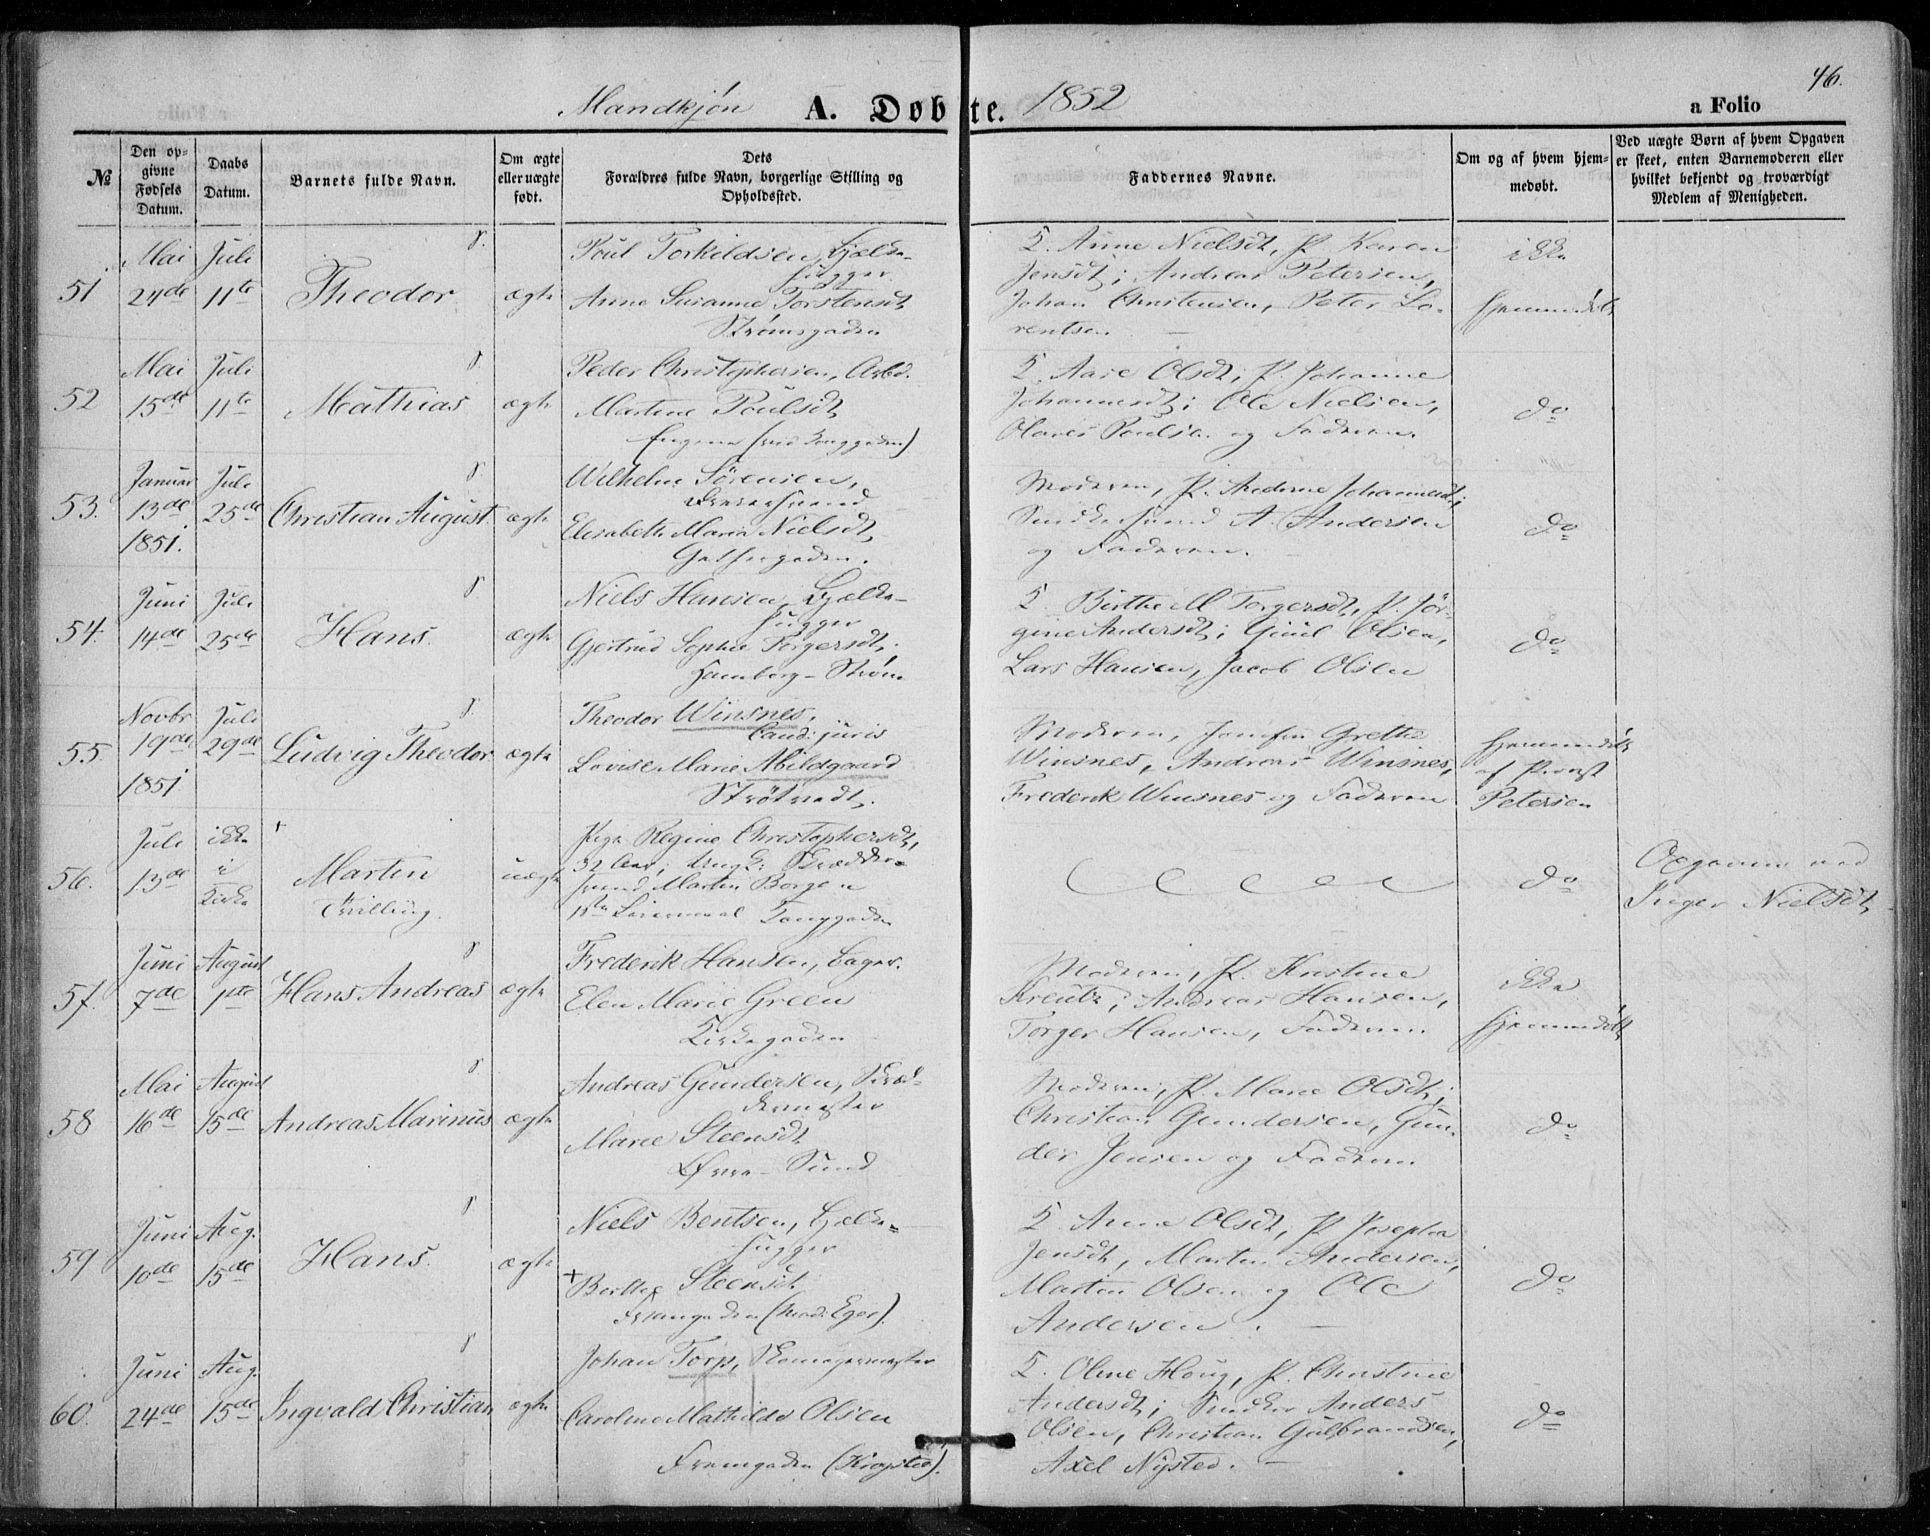 46.
Mandkjøn A. Døbte. 1852
a Folio
№
Den opgivne Fødsels Datum.
Daabs Datum.
Barnets fulde Navn.
Om ægte eller uægte født.
Dets Forældres fulde Navn, borgerlige Stilling og Opholdssted.
Faddernes Navne.
Om og af hvem hjemmedøbt.
Ved uægte Børn af hvem Opgaven er skeet, enten Barnemoderen eller hvilket bekjendt og troværdigt Medlem af Menigheden.
51
Mai 24de
Juli 11te
Theodor
ægte
Poul Torkildsen, Bjælke-
hugger
Anne Susanne Torstensdt
Strømsgaden
K. Anne Nielsdt, P. Karen
Jensdt; Andreas Petersen,
Johan Christensen, Peter Lo-
rentsen
ikke
hjemmedøbt
52
Mai 15de
Juli 11te
Mathias
ægte
Peder Christophersen, Arbd.
Martine Poulsdt
Engene (ved Langgaden)
K. Aase Olsdt; P. Johanne
Johannesdt; Ole Nielsen,
Olaves Poulsen og Faderen.
do
53.
Januar 13de 1851.
Juli 25de
Christian August.
ægte
Wilhelm Sørensen,
Elisabeth Maria Nielsdt,
Moderen, P. Andrine Johannesdt;
Snedkersvend A. Andersen
og Faderen.
do
54.
Juni 14de
Juli 25de
Hans.
ægte
Niels Hansen, Bjælke-
hugger
Gjertrud Sophie Torgersdt;
Hamborg-Strøm
K. Birthe M Torgersdt, P. Jør-
gine Andersdt; Giuul Olsen,
Lars Hansen, Jacob Olsen
do
55.
Novbr 19de 1851
Juli 29de
Ludvig Theodor
ægte
Theodor Winsnes,
Cand: juris
Lovise Marie Abildgaard
Strøtvedt.
Moderen, Jomfru Grethe
Winsnes, Andreas Winsnes,
Frederik Winsnes og Faderen
hjemmedøbt
af Provst
Petersen
56.
Juli 13de
ikke i Kirke
Martin
Tvilling.
uægte
Pige Regine Christophersdt,
32 Aar; ungk: Skrædder-
svend Martin Borgen
1ste Leiermaal Langgaden
do
Opgaven ved
Inger Nielsdt,
57.
Juni 7de
August 1ste
Hans Andreas
ægte
Frederik Hansen, Bager.
Elen Marie Green
Kirkegaden
Moderen, P. Kristine
Kreutz; Andreas Hansen,
Torger Hansen, Faderen
ikke
hjemmedøbt
58
Mai 16de
August 15de
Andreas Marinus
ægte
Andreas Gundersen, Skræd-
dermester
Maree Steensdt
Øvre-Sund
Moderen, P. Marie Olsdt;
Christian Gundersen, Gun-
der Jensen og Faderen
do
59
Juni 10de
Aug. 15de
Hans.
ægte
Niels Bentsen, Bjælke-
hugger
Berthe Steensdt
Framgaden (Mad: Eger).
K. Anne Olsdt, P. Josepha
Jensdt, Martin Andersen,
Martin Olsen og Ole
Andersen.
do
60.
Juni 24de
Aug. 15de
Ingvald Christian
ægte
Johan Torp, Skomagermester
Caroline Mathilde Olsen
Framgaden (Kiøsterud).
K. Oline Houg, P. Christine
Andersdt; Snedker Anders
Olsen, Christian Gulbrandsen,
Axel Nysted.
do